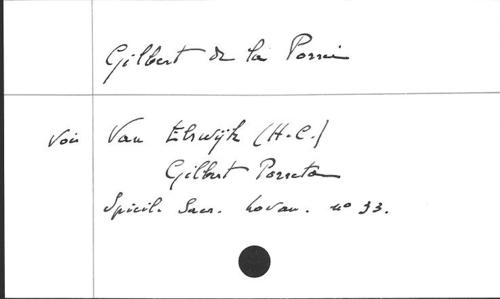 Gilbert de la Porrée
Voir Van Elswijk (H.C.)
Gilbert Porreta
Spicil. Sacr. Lovan. nº 33.